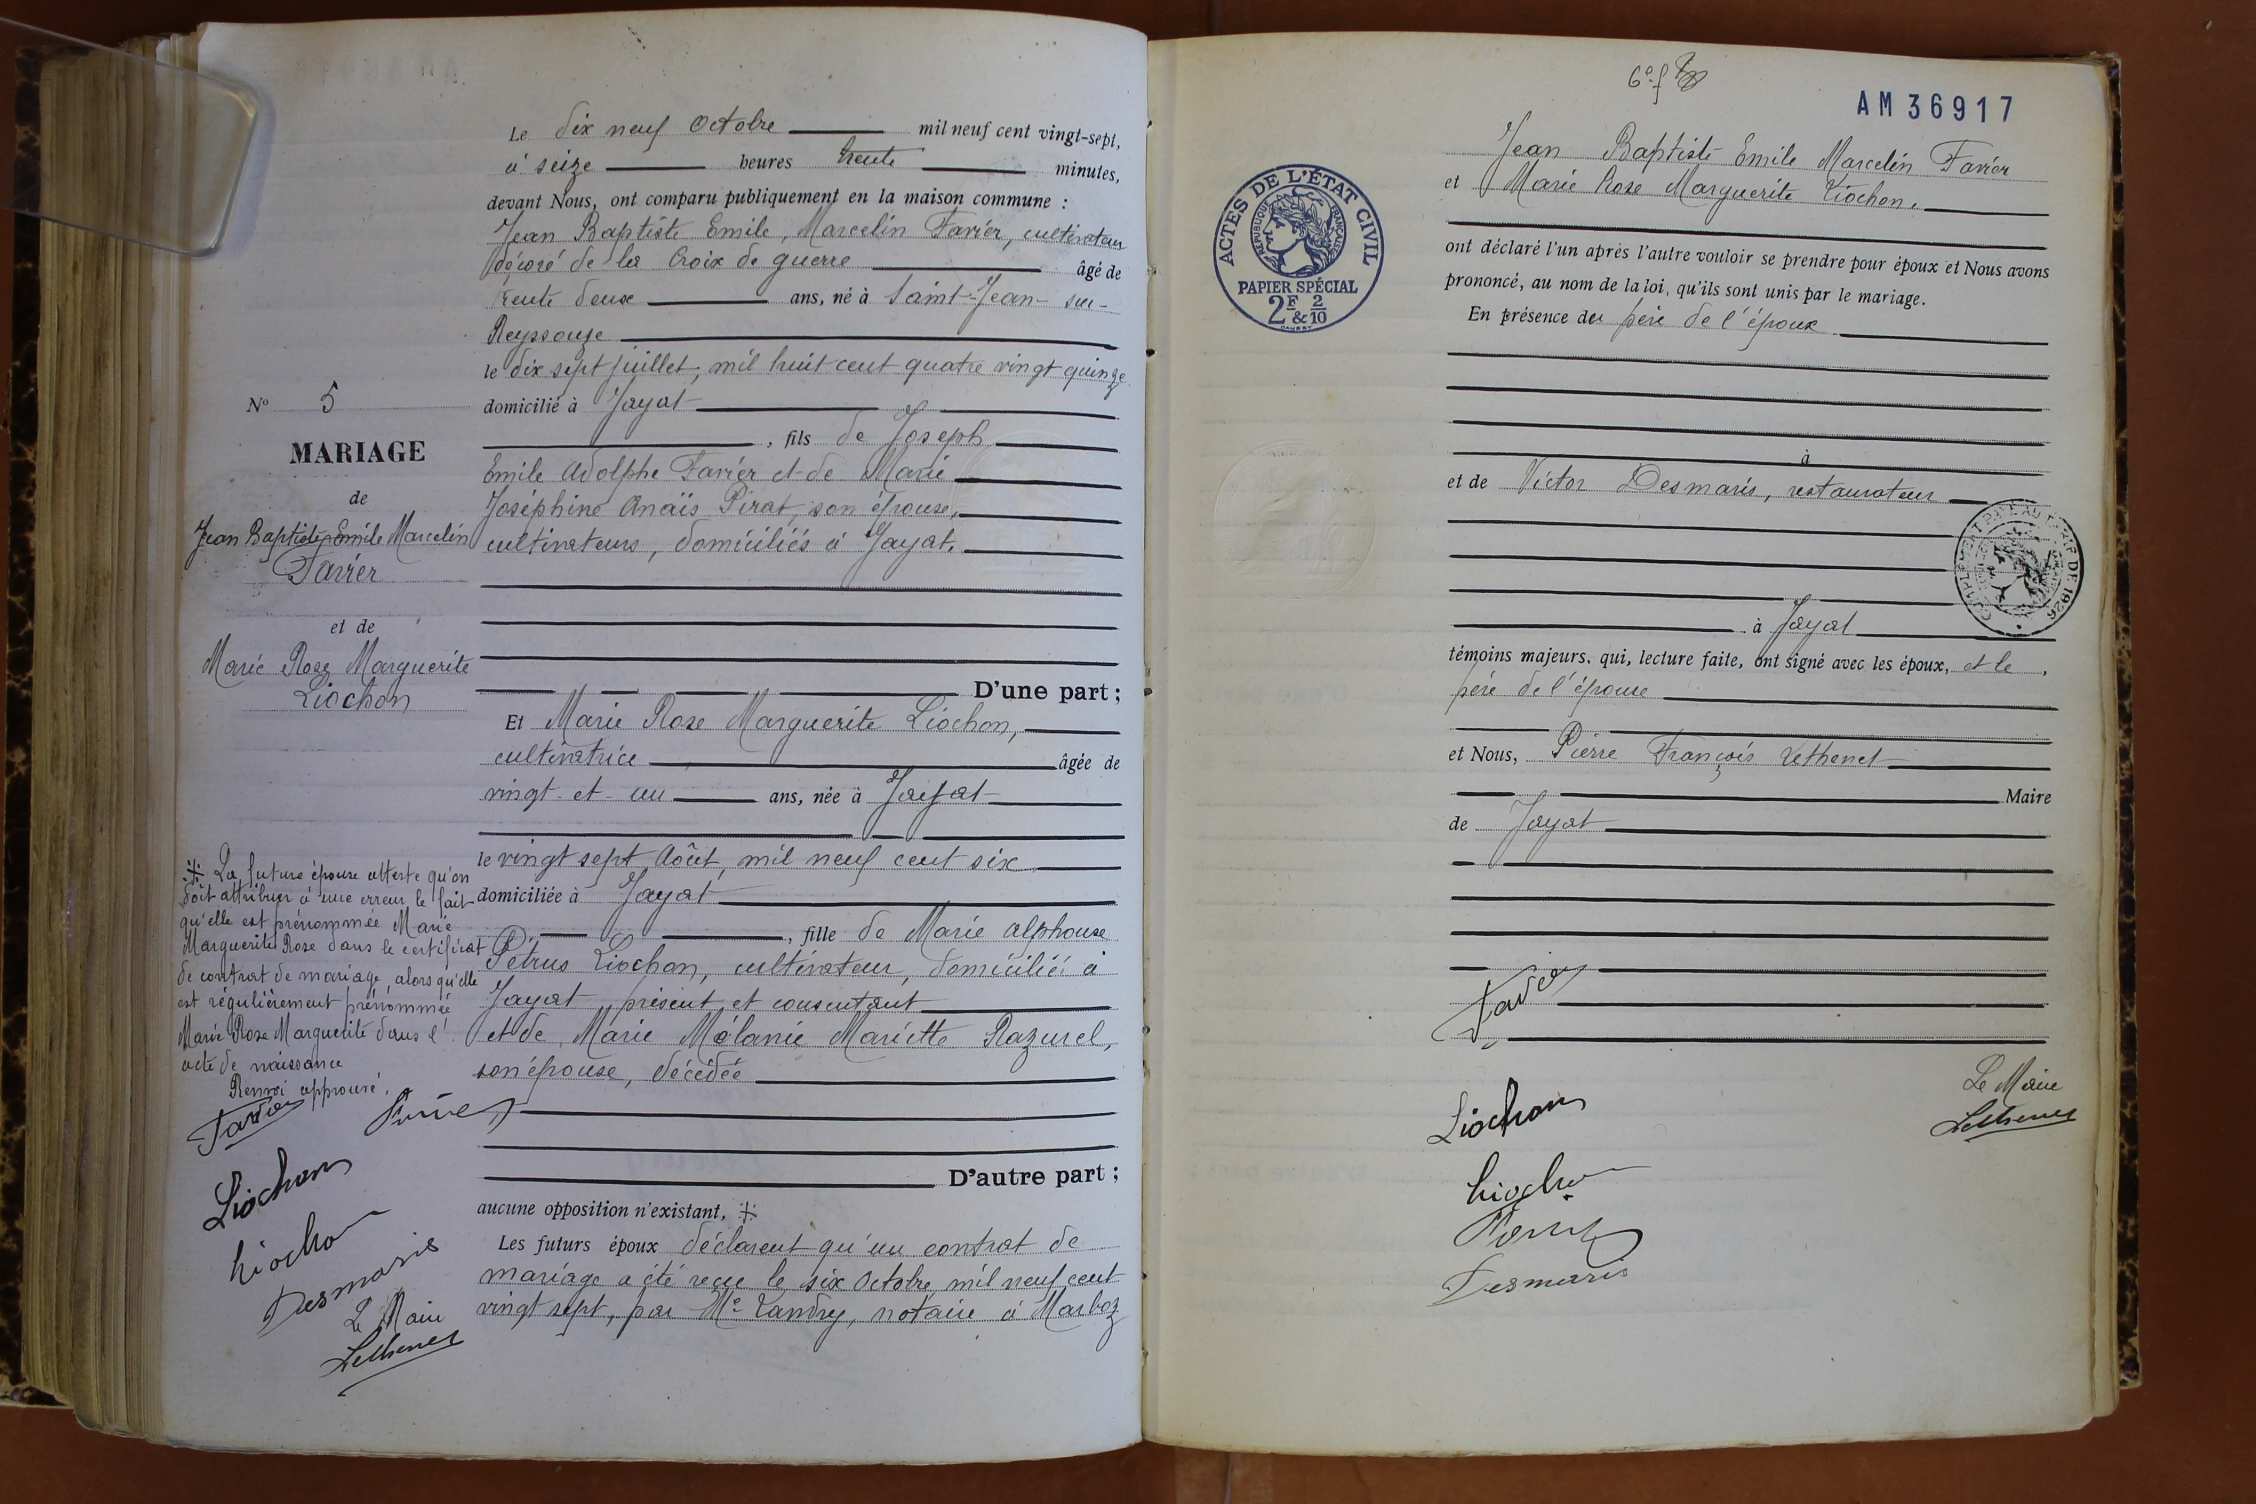 Le dix neuf Octobre mil neuf cent vingt-sept,
à seize heures trente minutes,
devant Nous, ont comparu publiquement en la maison commune :
Jean Baptiste Emile, Marcelin Favier, cultivateur
décoré de la Croix de guerre âgé de
trente deux ans, né à Saint-Jean-sur-
Reyssouze
le dix sept juillet, mil huit cent quatre vingt quinze
domicilié à Jayat
, fils de Joseph
Emile Adolphe Favier et de Marie
Joséphine Anaïs Pirat, son épouse,
cultivateurs, domiciliés à Jayat.
D'une part ;
Et Marie Rose Marguerite Liochon,
cultivatrice âgée de
vingt et un ans, née à Jayat
le vingt sept Août, mil neuf cent six
domiciliée à Jayat
, fille de Marie Alphonse
Pétrus Liochon, cultivateur, domicilié à
Jayat, présent et consentant
et de Marie Mélanie Mariette Razurel,
son épouse, décédée
D'autre part ;
aucune opposition n'existant, ⁜
Les futurs époux déclarent qu'un contrat de
mariage a été reçu le six Octobre mil neuf cent
vingt sept, par Me Landry, notaire à Marboz
No 5
MARIAGE
de
Jean Baptiste Emile Marcelin
Favier
et de
Marie Rose Marguerite
Liochon
⁜ La future épouse atteste qu'on
doit attribuer à une erreur le fait
qu'elle est prénommée Marie
Marguerite Rose dans le certificat
de contrat de mariage, alors qu'elle
est régulièrement prénommée
Marie Rose Marguerite dans l'
acte de naissance
Renvoi approuvé.
Favier
Liochon
Liochon
Desmaris
Le Maire
Lethenet
6e f
AM36917
ACTES DE L'ÉTAT CIVIL
RÉPUBLIQUE FRANÇAISE
PAPIER SPÉCIAL
2F & 2/10
Jean Baptiste Emile Marcelin Favier
et Marie Rose Marguerite Liochon.
ont déclaré l'un après l'autre vouloir se prendre pour époux et Nous avons
prononcé, au nom de la loi, qu'ils sont unis par le mariage.
En présence du père de l'époux
à
et de Victor Desmaris, restaurateur
à Jayat
témoins majeurs. qui, lecture faite, ont signé avec les époux, et le
père de l'épouse
et Nous, Pierre François Lethenet
Maire
de Jayat
Favier
Liochon
Liochon
Desmaris
Le Maire
Lethenet